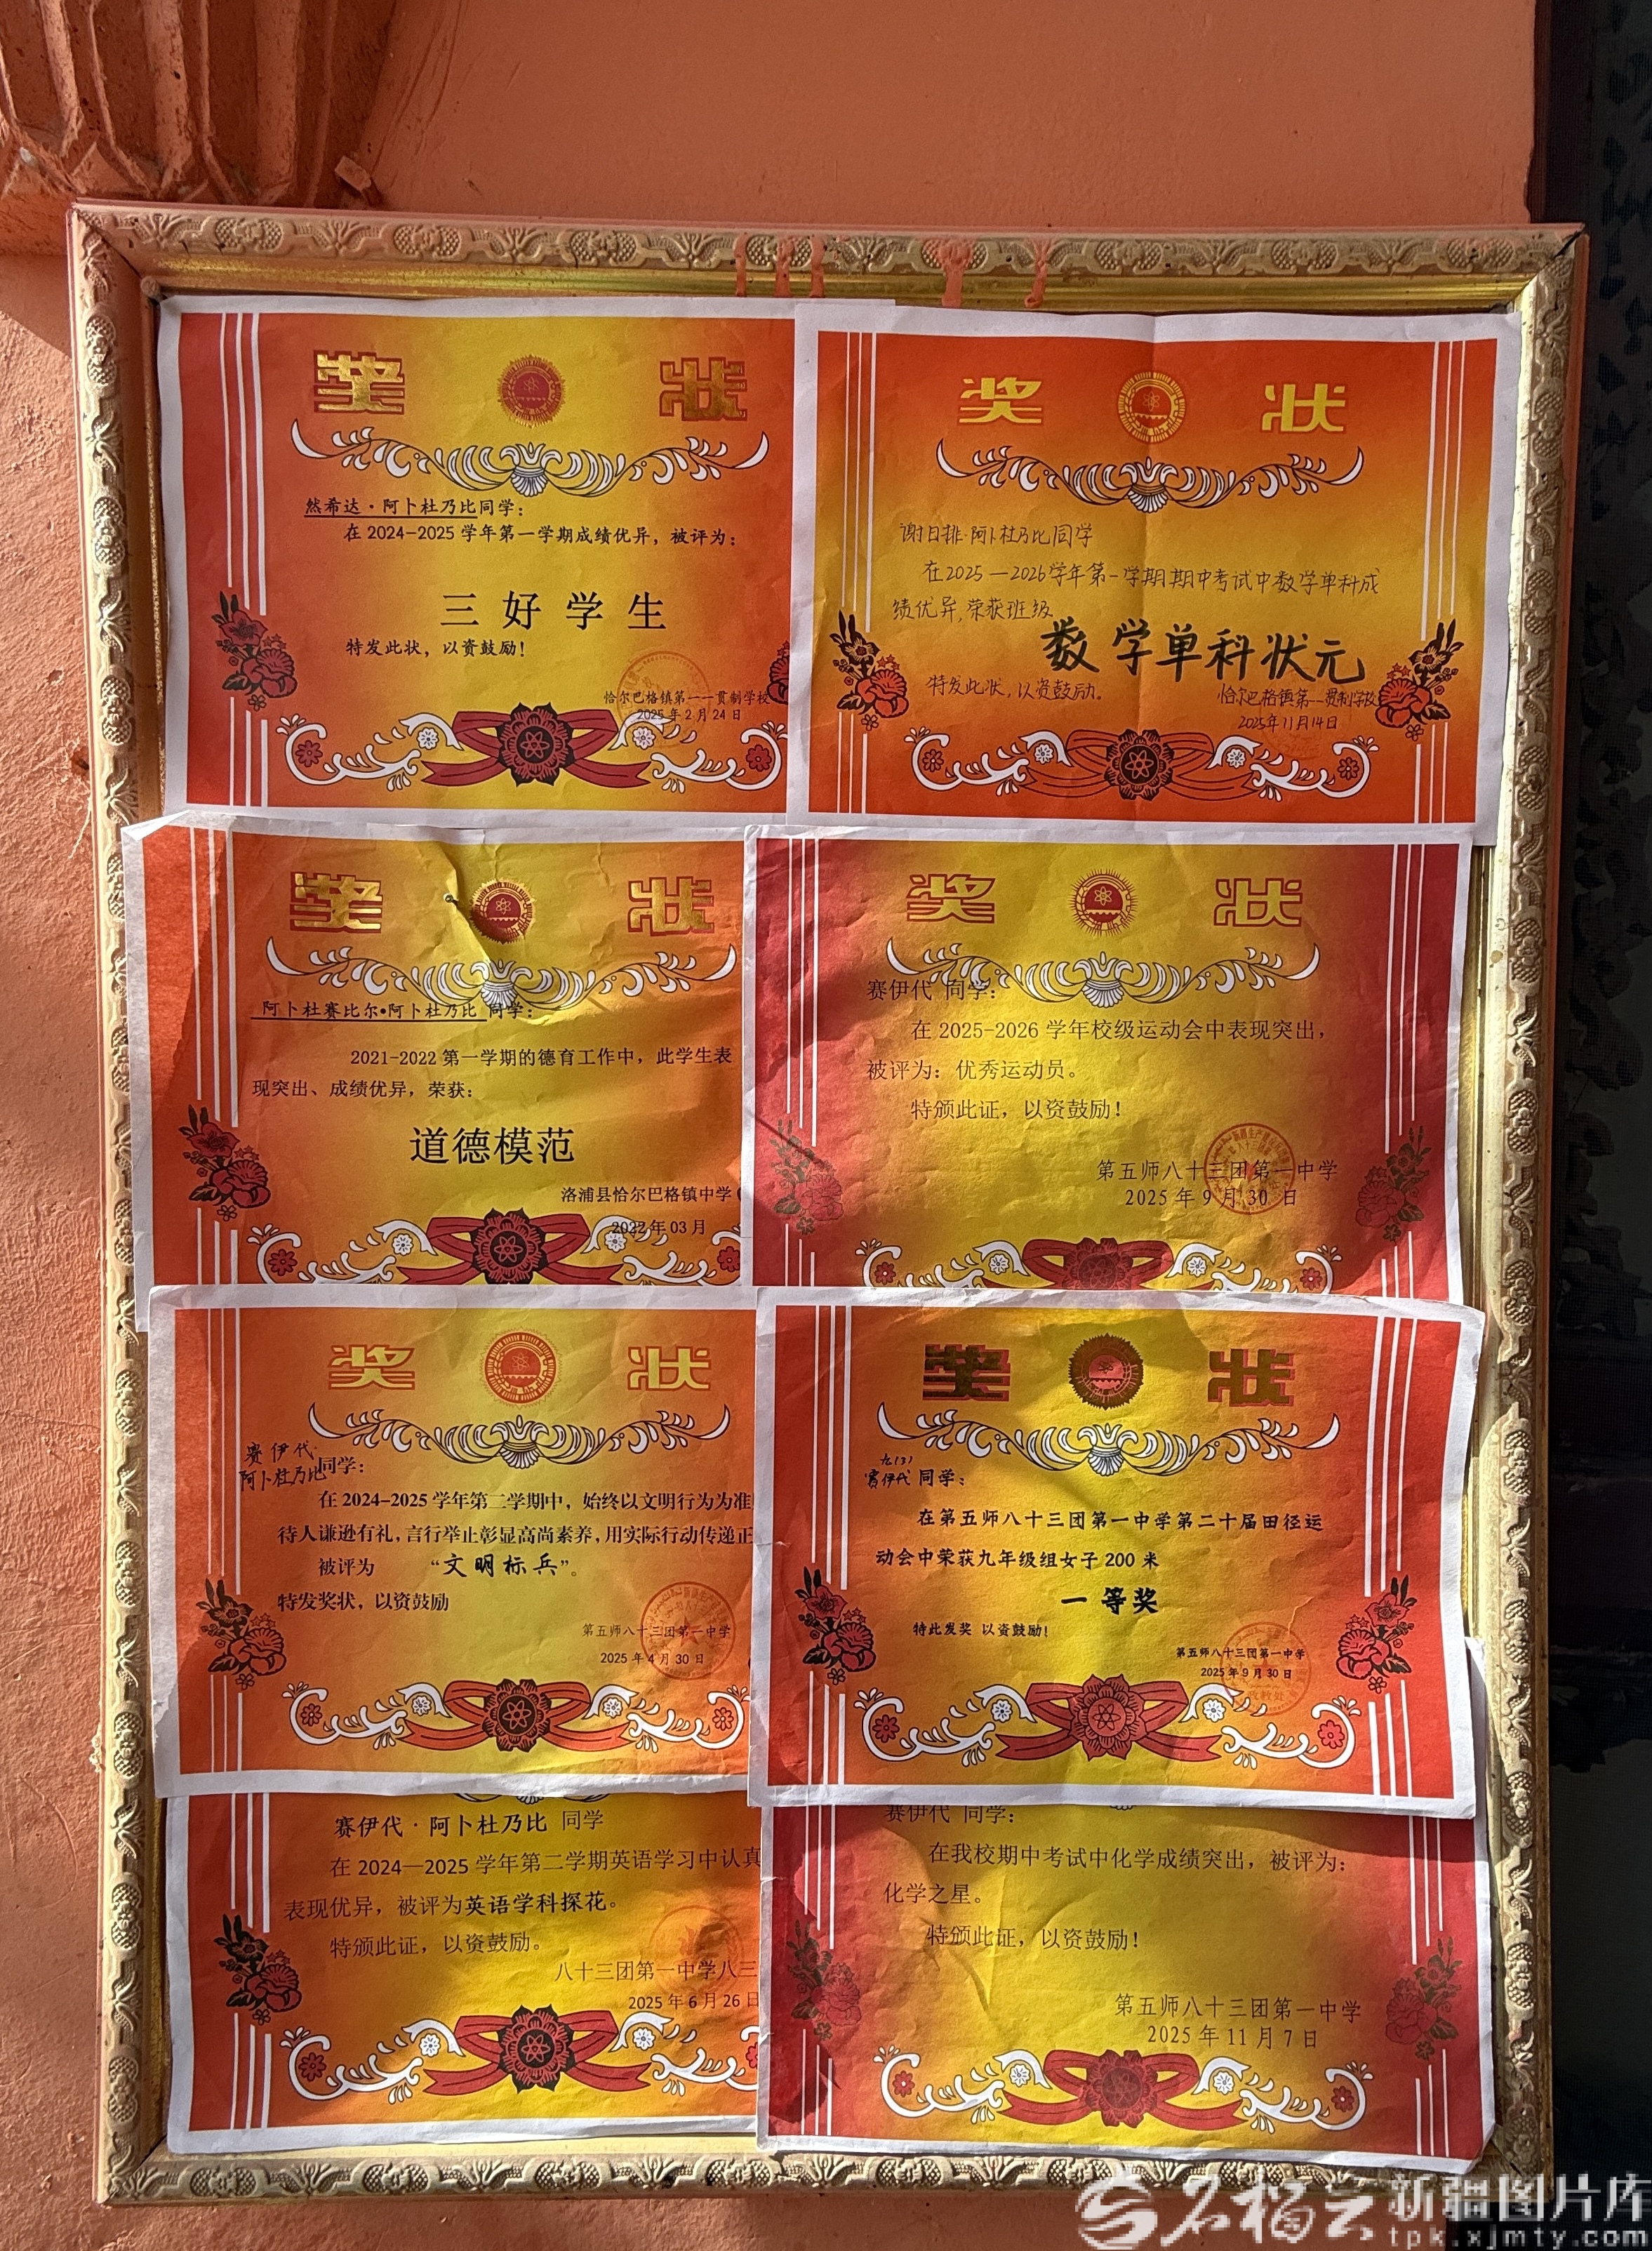 奖 状
然希达·阿卜杜乃比同学：
在 2024-2025 学年第一学期成绩优异，被评为：
三好学生
特发此状，以资鼓励！
恰尔巴格镇第一一贯制学校
2025 年 2 月 24 日
奖 状
谢日排·阿卜杜乃比同学
在2025—2026学年第一学期期中考试中数学单科成
绩优异，荣获班级
数学单科状元
特发此状，以资鼓励。
恰尔巴格镇第一一贯制学校
2025年11月14日
奖 状
阿卜杜赛比尔•阿卜杜乃比 同学：
2021-2022 第一学期的德育工作中，此学生表
现突出、成绩优异，荣获：
道德模范
洛浦县恰尔巴格镇中学（
2022 年 03 月
奖 状
赛伊代 同学：
在 2025-2026 学年校级运动会中表现突出，
被评为：优秀运动员。
特颁此证，以资鼓励！
第五师八十三团第一中学
2025 年 9 月 30 日
奖 状
赛伊代·
阿卜杜乃比同学：
在 2024-2025 学年第二学期中，始终以文明行为为准
待人谦逊有礼，言行举止彰显高尚素养，用实际行动传递正
被评为 “文明标兵”。
特发奖状，以资鼓励
第五师八十三团第一中学
2025 年 4 月 30 日
奖 状
九(3)
赛伊代 同学：
在第五师八十三团第一中学第二十届田径运
动会中荣获九年级组女子 200 米
一等奖
特此发奖 以资鼓励！
第五师八十三团第一中学
2025 年 9 月 30 日
赛伊代·阿卜杜乃比 同学
在 2024—2025 学年第二学期英语学习中认真
表现优异，被评为英语学科探花。
特颁此证，以资鼓励。
八十三团第一中学八三
2025 年 6 月 26 日
赛伊代 同学：
在我校期中考试中化学成绩突出，被评为：
化学之星。
特颁此证，以资鼓励！
第五师八十三团第一中学
2025 年 11 月 7 日
石榴云 新疆图片库
tpk.xjmty.com